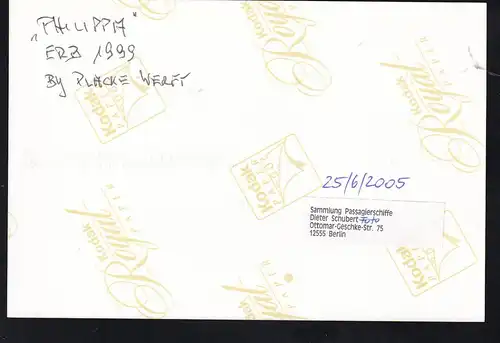 "PHILIPPA"
ERB 1999
By PLACKE WERFT
25/6/2005
Sammlung Passagierschiffe
Dieter Schubert Foto
Ottomar-Geschke-Str. 75
12555 Berlin
Kodak
Royal
PAPER
Kodak
PAPER
Kodak
Royal
PAPER
Kodak
PAPER
Kodak
Royal
PAPER
Kodak
PAPER
Royal
PAPER